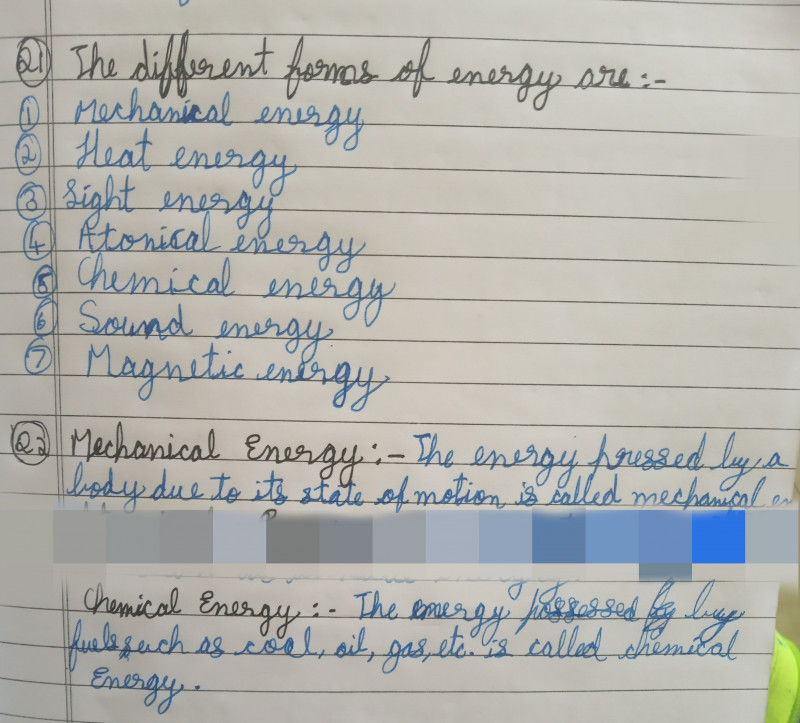 Q1 The different forms of energy are :-
① Mechanical energy
② Heat energy
③ Light energy
④ Atonical energy
⑤ Chemical energy
⑥ Sound energy
⑦ Magnetic energy
Q2 Mechanical Energy :- The energy pressed by a
body due to its state of motion is called mechanical en
Chemical Energy :- The energy possessed by
fuels such as coal, oil, gas, etc. is called chemical
Energy.